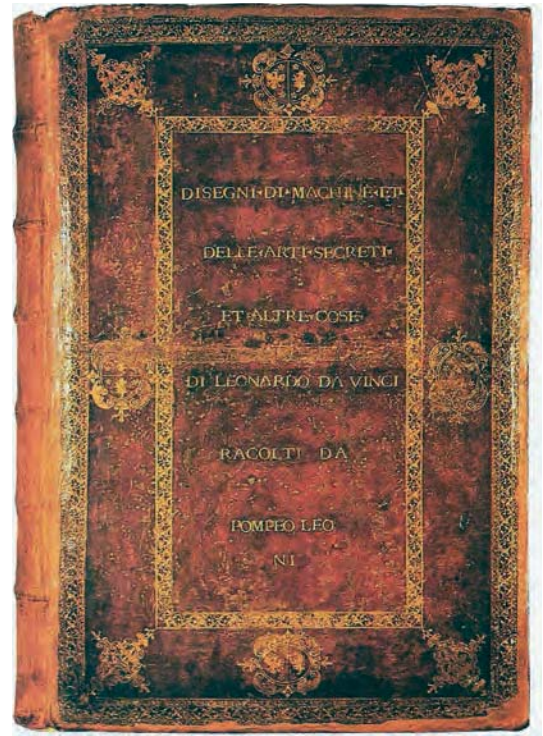 DISEGNI·DI·MACHINE·ET·
DELLE·ARTI·SECRETI·
ET·ALTRE·COSE·
DI LEONARDO DA VINCI
RACOLTI DA
POMPEO LEO
NI